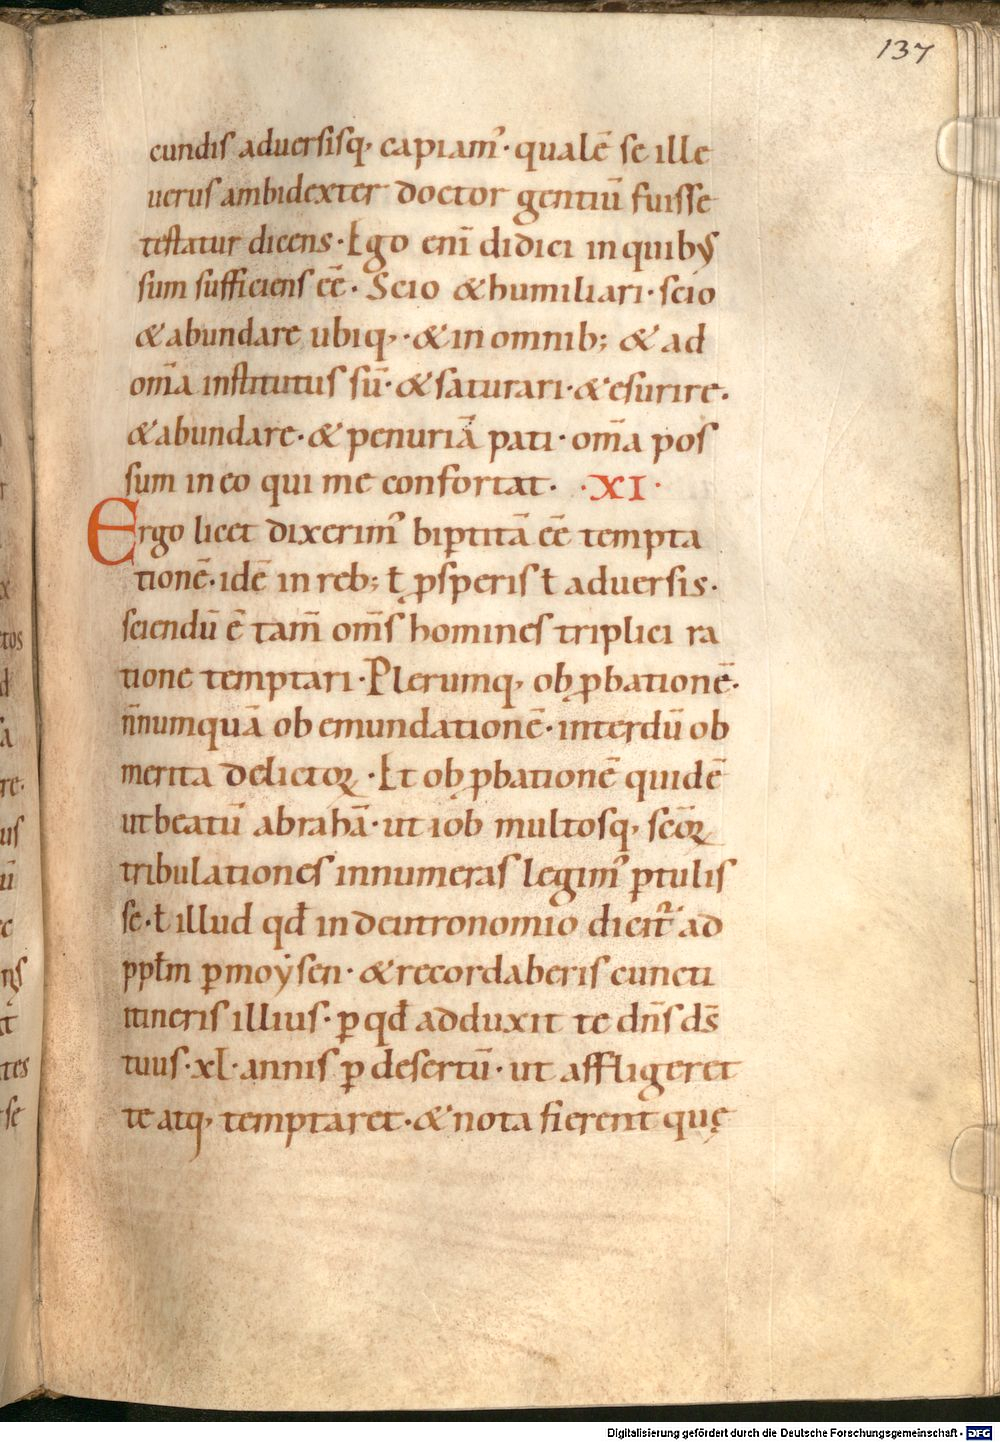 137
cundis aduersisq; capiam᾽· qualē se ille
uerus ambidexter doctor gentiū fuisse
testatur dicens· Ego eni̅ didici in quibꝰ
sum sufficiens ee̅· Scio & humiliari· scio
& abundare ubiq;·& in omnib; & ad
om̅a institutus su̅·& saturari·& esurire·
& abundare·& penuriā pati· om̅a pos
sum in eo qui me confortat· ·XI·
Ergo licet dixerim᾽ bip̱titā ee̅ tempta
tionē· idē in reb; ł ꝓsperis ł aduersis·
sciendū ē tam̅ om̅s homines triplici ra
tione temptari· Plerumq; ob ꝓbationē·
n̅numquā ob emundationē· interdū ob
merita delictoꝝ· Et ob ꝓbationē quidē
ut beatū abrahā· ut iob multosq; sc̅oꝝ
tribulationes innumeras legim᾽ ꝑtulis
se· ł illud qđ in deutronomio dicit᾽ ad
ppłm ꝑ moẏsen· & recordaberis cuncti
itineris illius· ꝑ qđ adduxit te dn̅s ds̅
tuus· xl· annis ꝑ desertū· ut affligeret
te atq; temptaret·& nota fierent quę
tos
d
re·
us
ū
c
tes
se
Digitalisierung gefördert durch die Deutsche Forschungsgemeinschaft - DFG